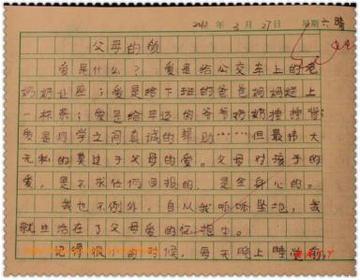 年3月27日 星期六 晴
父母的爱
爱是什么?爱是给公交车上的老
奶奶让座;爱是给下班的爸爸妈妈递上
一杯茶;爱是给年迈的爷爷奶奶捶捶背
爱是同学之间真诚的帮助……但最伟大
无私的莫过于父母的爱。父母对孩子的
爱,是不求任何回报的,是全身心的。
我也不例外,自从我呱呱坠地,我
就生活在了父母爱的怀抱中。
记得很小的时候,每天晚上睡觉